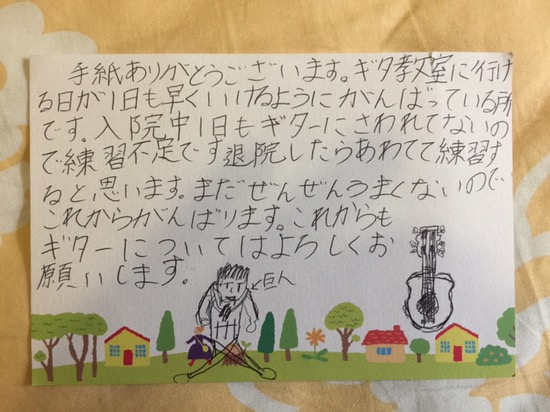 手紙ありがとうございます。ギタ教室に行け
る日が1日も早くいけるようにがんばっている所
です。入院中1日もギターにさわれてないの
で練習不足です退院したらあわてて練習す
ると思います。まだぜんぜんうまくないので、
これからがんばります。これからも
ギターについてはよろしくお
願いします。
←巨人